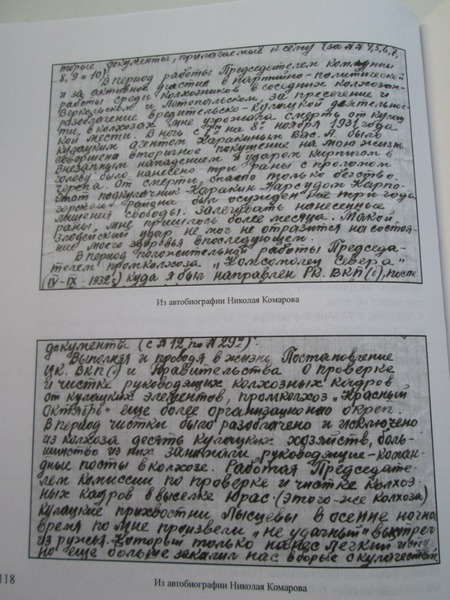 торые документы, прилагаемые к сему (за №№ 4,5,6,7,
8, 9 и 10).
В период работы Председателем коммуны
и за активное участие в партийно-политической
работы среди колхозников в соседних колхозах
Веркольском и Летопольском, за пресечение и
разоблачение вредительско-кулацкой деятельнос
ти, в колхозах, мне угрожала смерть от кулац
кой мести. В ночь с 7го на 8е ноября 1931 года
кулацким агентом Харакиным Вас. А. было
совершено вторичное покушение на мою жизнь
внезапным нападением и ударом кирпичом в
голову было нанесено три раны с проломом
черепа. От смерти спасло только бегство.
Этот подкулачник
Нарсудом Карпо-
горского района был осужден на три года
лишения свободы. Залечивать нанесенные
раны, мне пришлось более месяца. Такой
злодейский удар не мог не отразится на состоя-
нии моего здоровья в последующем.
В период положительной работы Председа-
телем промколхоза „Комсомолец Севера"
(IV-IX-1932г.) куда я был направлен РК. ВКП(б), после
Из автобиографии Николая Комарова
документы (с №12 по №29й).
Выполняя и проводя в жизнь Постановление
ЦК. ВКП(б) и Правительства о проверке
и чистке руководящих колхозных кадров
от кулацких элементов, промколхоз „Красный
Октябрь" еще более организационно окреп.
В период чистки было разоблачено и исключено
из колхоза десять кулацких хозяйств, боль-
шинство из них занимали руководящие-коман-
дные посты в колхозе. Работая Председате-
лем Комиссии по проверке и чистке колхоз-
ных кадров в выселке Юрас (этого-же колхоза)
кулацкие прихвостни Лысцевы в осенне ночное
время по мне произвели „не удачный" выстрел
из ружья. Который только нанес легкий испуг
но еще больше закалил нас в борьбе с кулачеством
118
Из автобиографии Николая Комарова